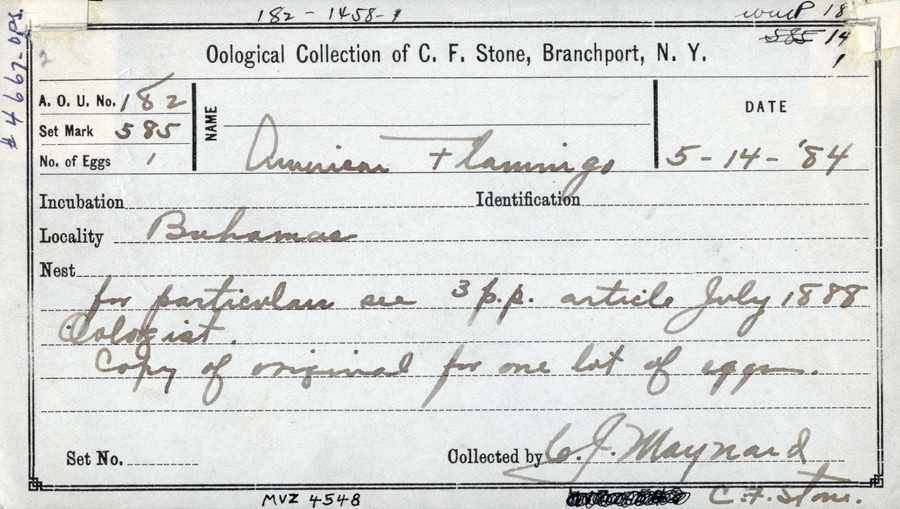 182-1458-1
wwP 18
585 14
1
#4667-005
2
Oological Collection of C. F. Stone, Branchport, N. Y.
A. O. U. No. 182
Set Mark 585
No. of Eggs 1
NAME American Flamingo
DATE
5-14-'84
Incubation
Identification
Locality Bahamas
Nest
for particulars see 3 p.p. article July 1888
Oologist.
Copy of original for one lot of eggs.
Set No.
Collected by C. J. Maynard
MVZ 4548
C. F. Stone.